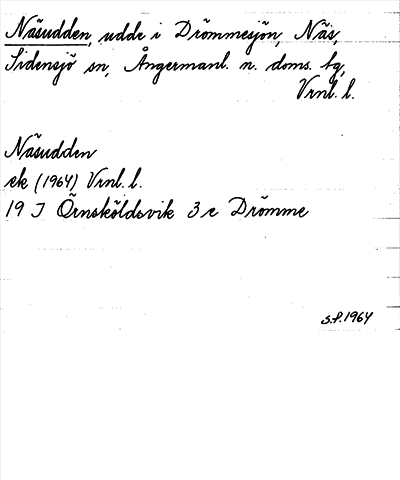 Näsudden, udde i Drömmesjön, Näs,
Sidensjö sn, Ångermanl. n. doms. tg,
Vrnl. l.
Näsudden
ek (1964) Vrnl. l.
19 J Örnsköldsvik 3 e Drömme
S.P. 1964